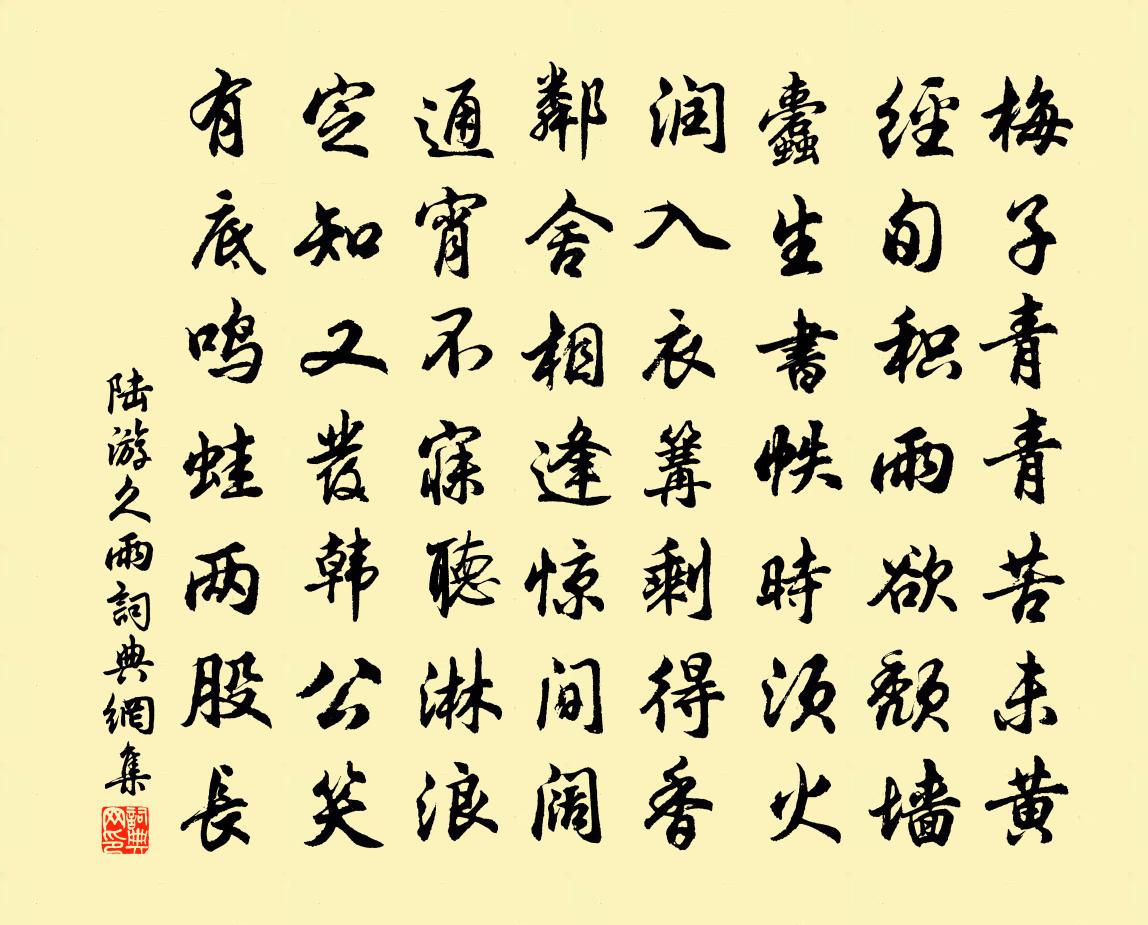 梅子青青苦未黄
經旬积雨欲颓墙
蠹生書帙時须火
润入衣篝剩得香
鄰舍相逢惊间阔
通宵不寐聽淋浪
定知又發韩公笑
有底鸣蛙两股長
陆游久雨詞典網集
詞典
网印